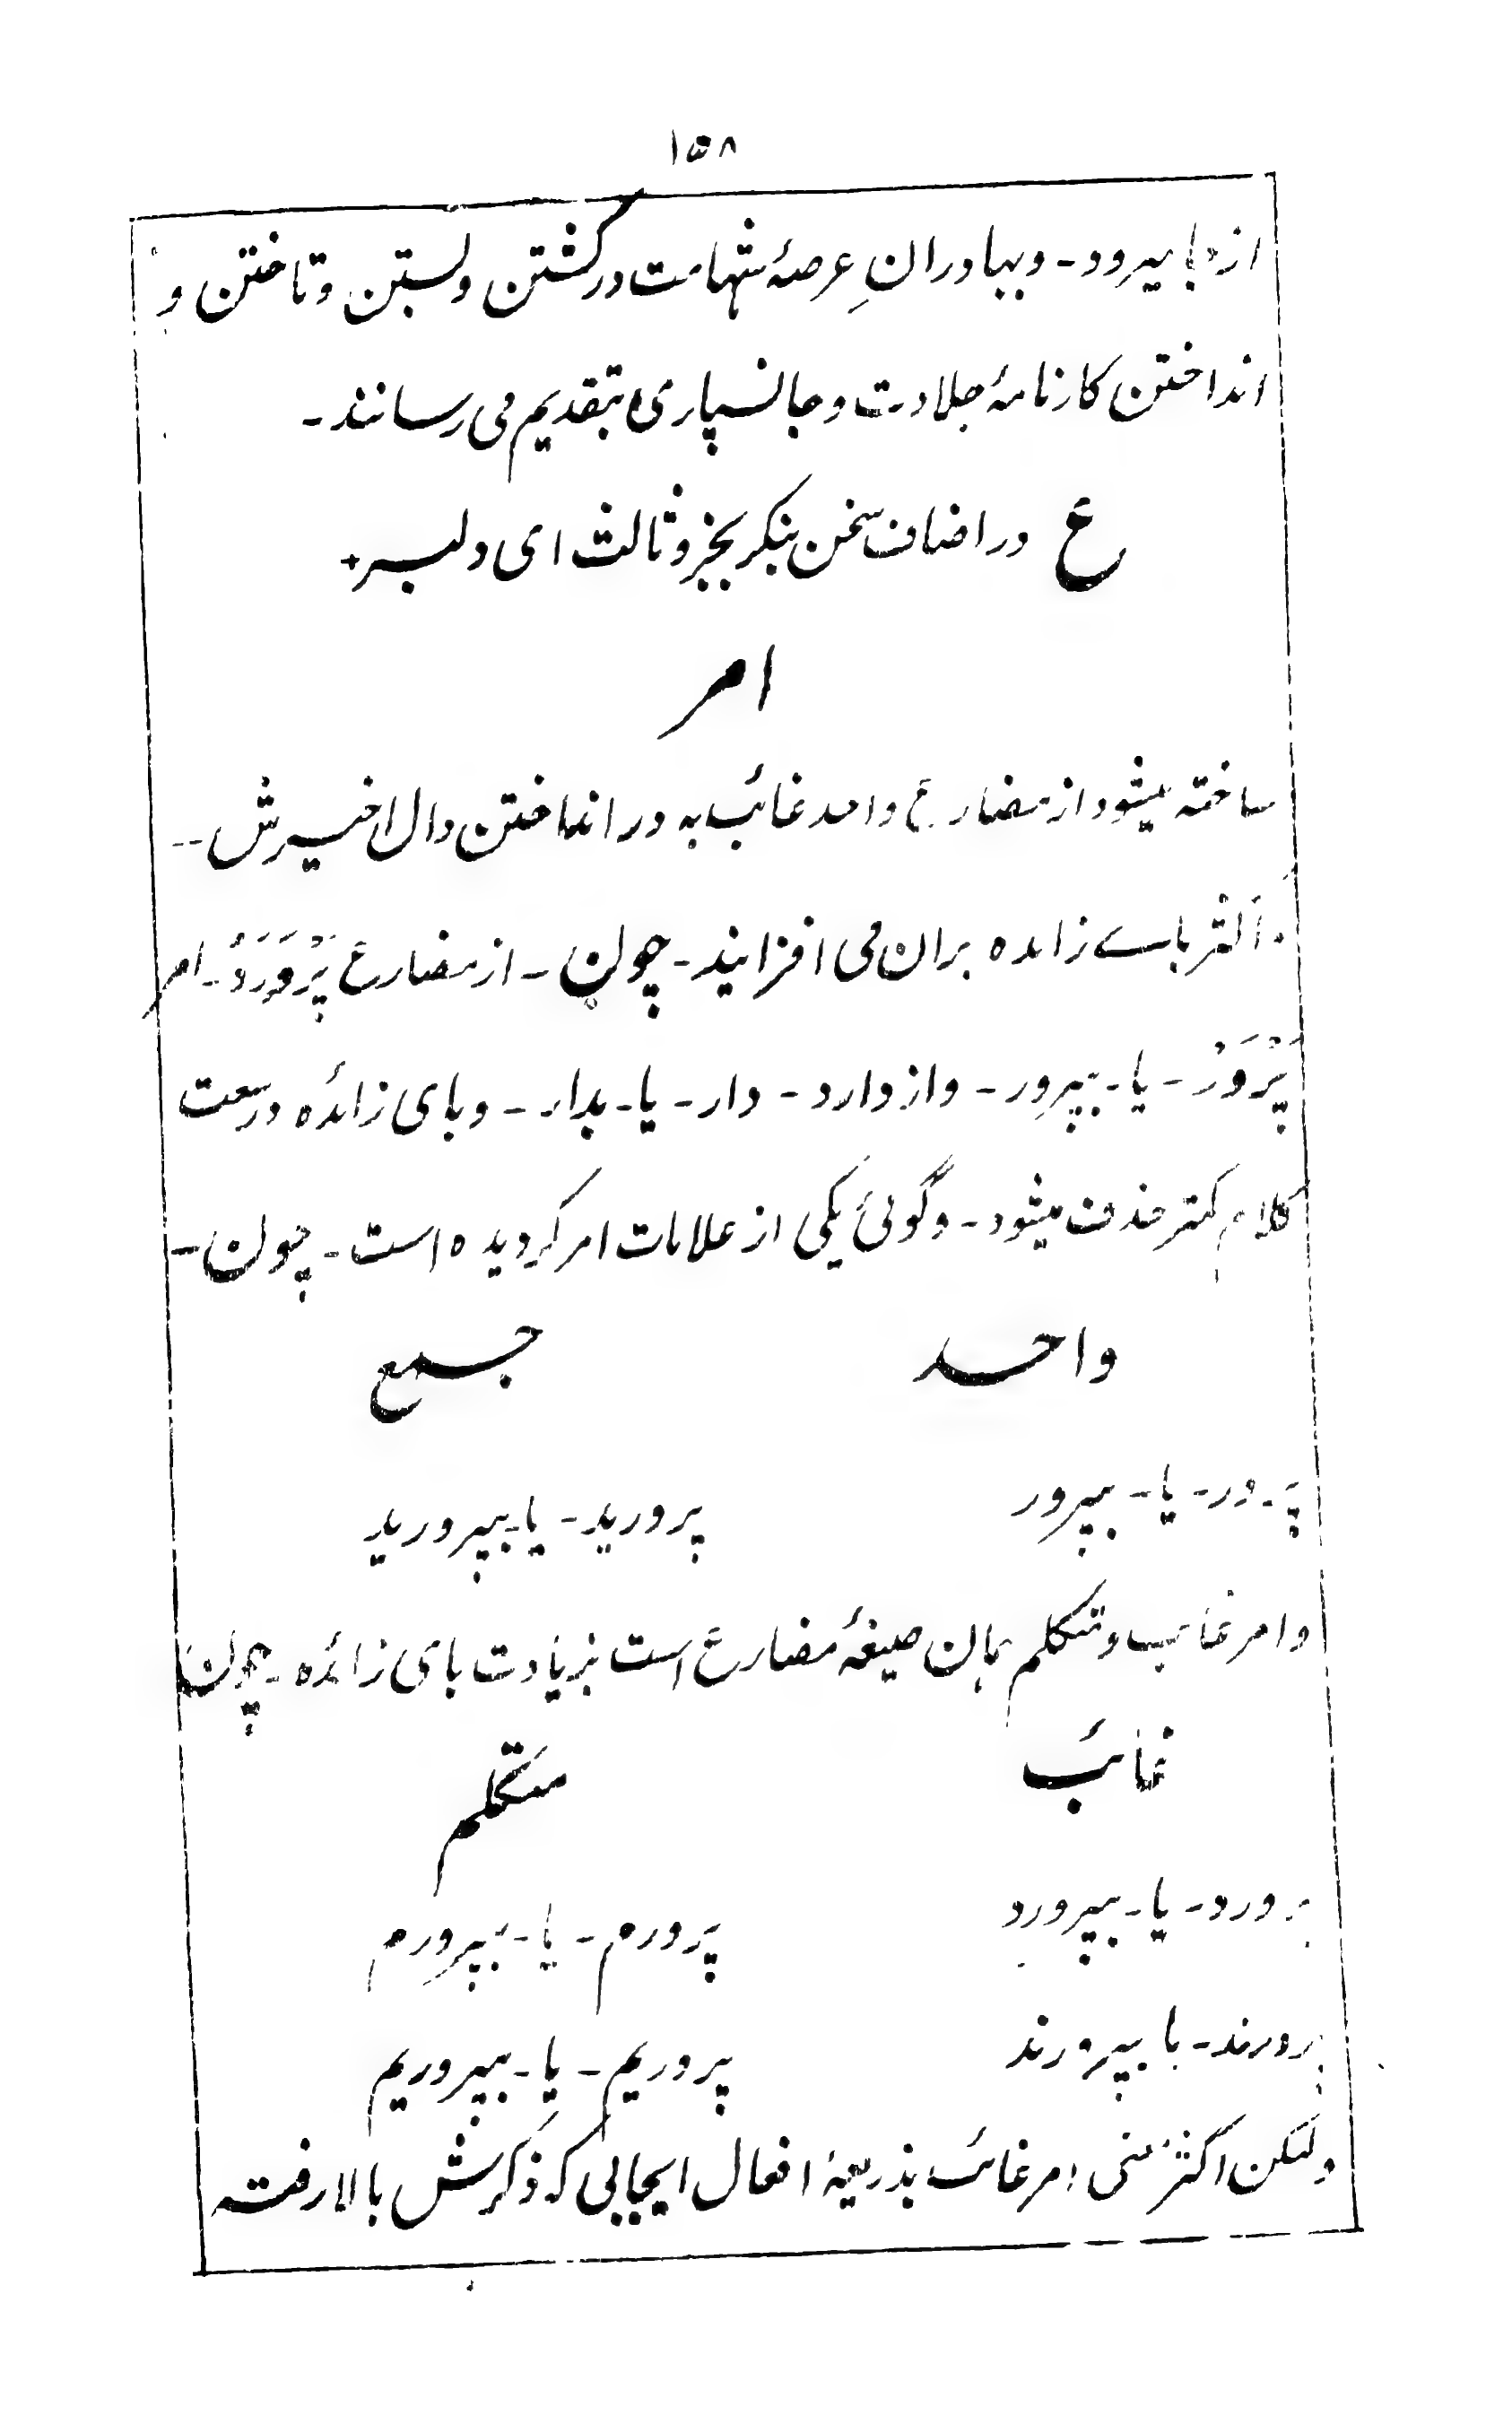 ۱۵۸
از دلها میرود - و بهادرانِ عرصۀ شهامت در کشتن و بستن و تاختن و
انداختن کارنامۀ جلادت و جانسپاری بتقدیم می رسانند -
ع در اضاف سخن بنگر بجزو ثالث ای دلبر +
امر
ساخته میشود از مضارع واحد غائب به در انداختن دال اخیرش --
و اکثر باے زائده بران می افزایند - چون - از مضارع پَرْوَرَدْ - امر
پَرْوَرْ - یا - بپرور - و از دارد - دار - یا - بدار - و بای زائده در سعت
کلام کمتر حذف میشود - و گوئی یکی از علامات امر گردیده است - چون -
واحد جمع
پرور - یا - بپرور پرورید - یا - بپرورید
و امر غائب و متکلم همان صیغۀ مضارع است بزیادت بای زائده - چون
غائب متکلم
پرورد - یا - بپرورد پرورم - یا - بپرورم
پرورند - یا بپرورند پروریم - یا - بپروریم
ولیکن اکثر معنی امر غائب بذریعۀ افعال ایجابی که ذکرش بالا رفته